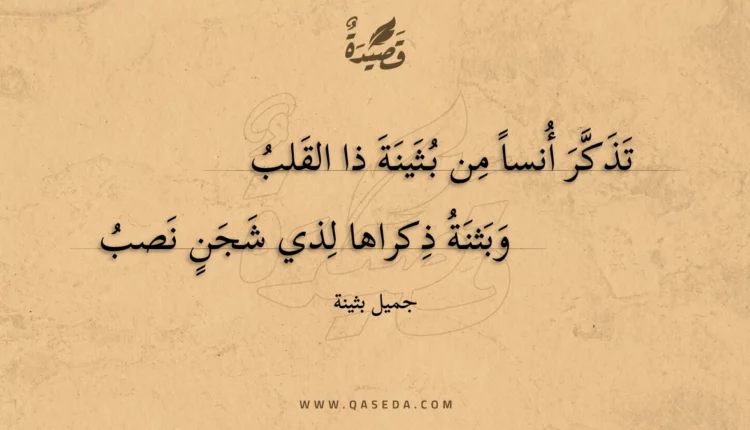 قَصِيدَةٌ
تَذَكَّرَ أُنساً مِن بُثَينَةَ ذا القَلبُ
وَبَثنَةُ ذِكراها لِذي شَجَنٍ نَصبُ
جميل بثينة
WWW.QASEDA.COM